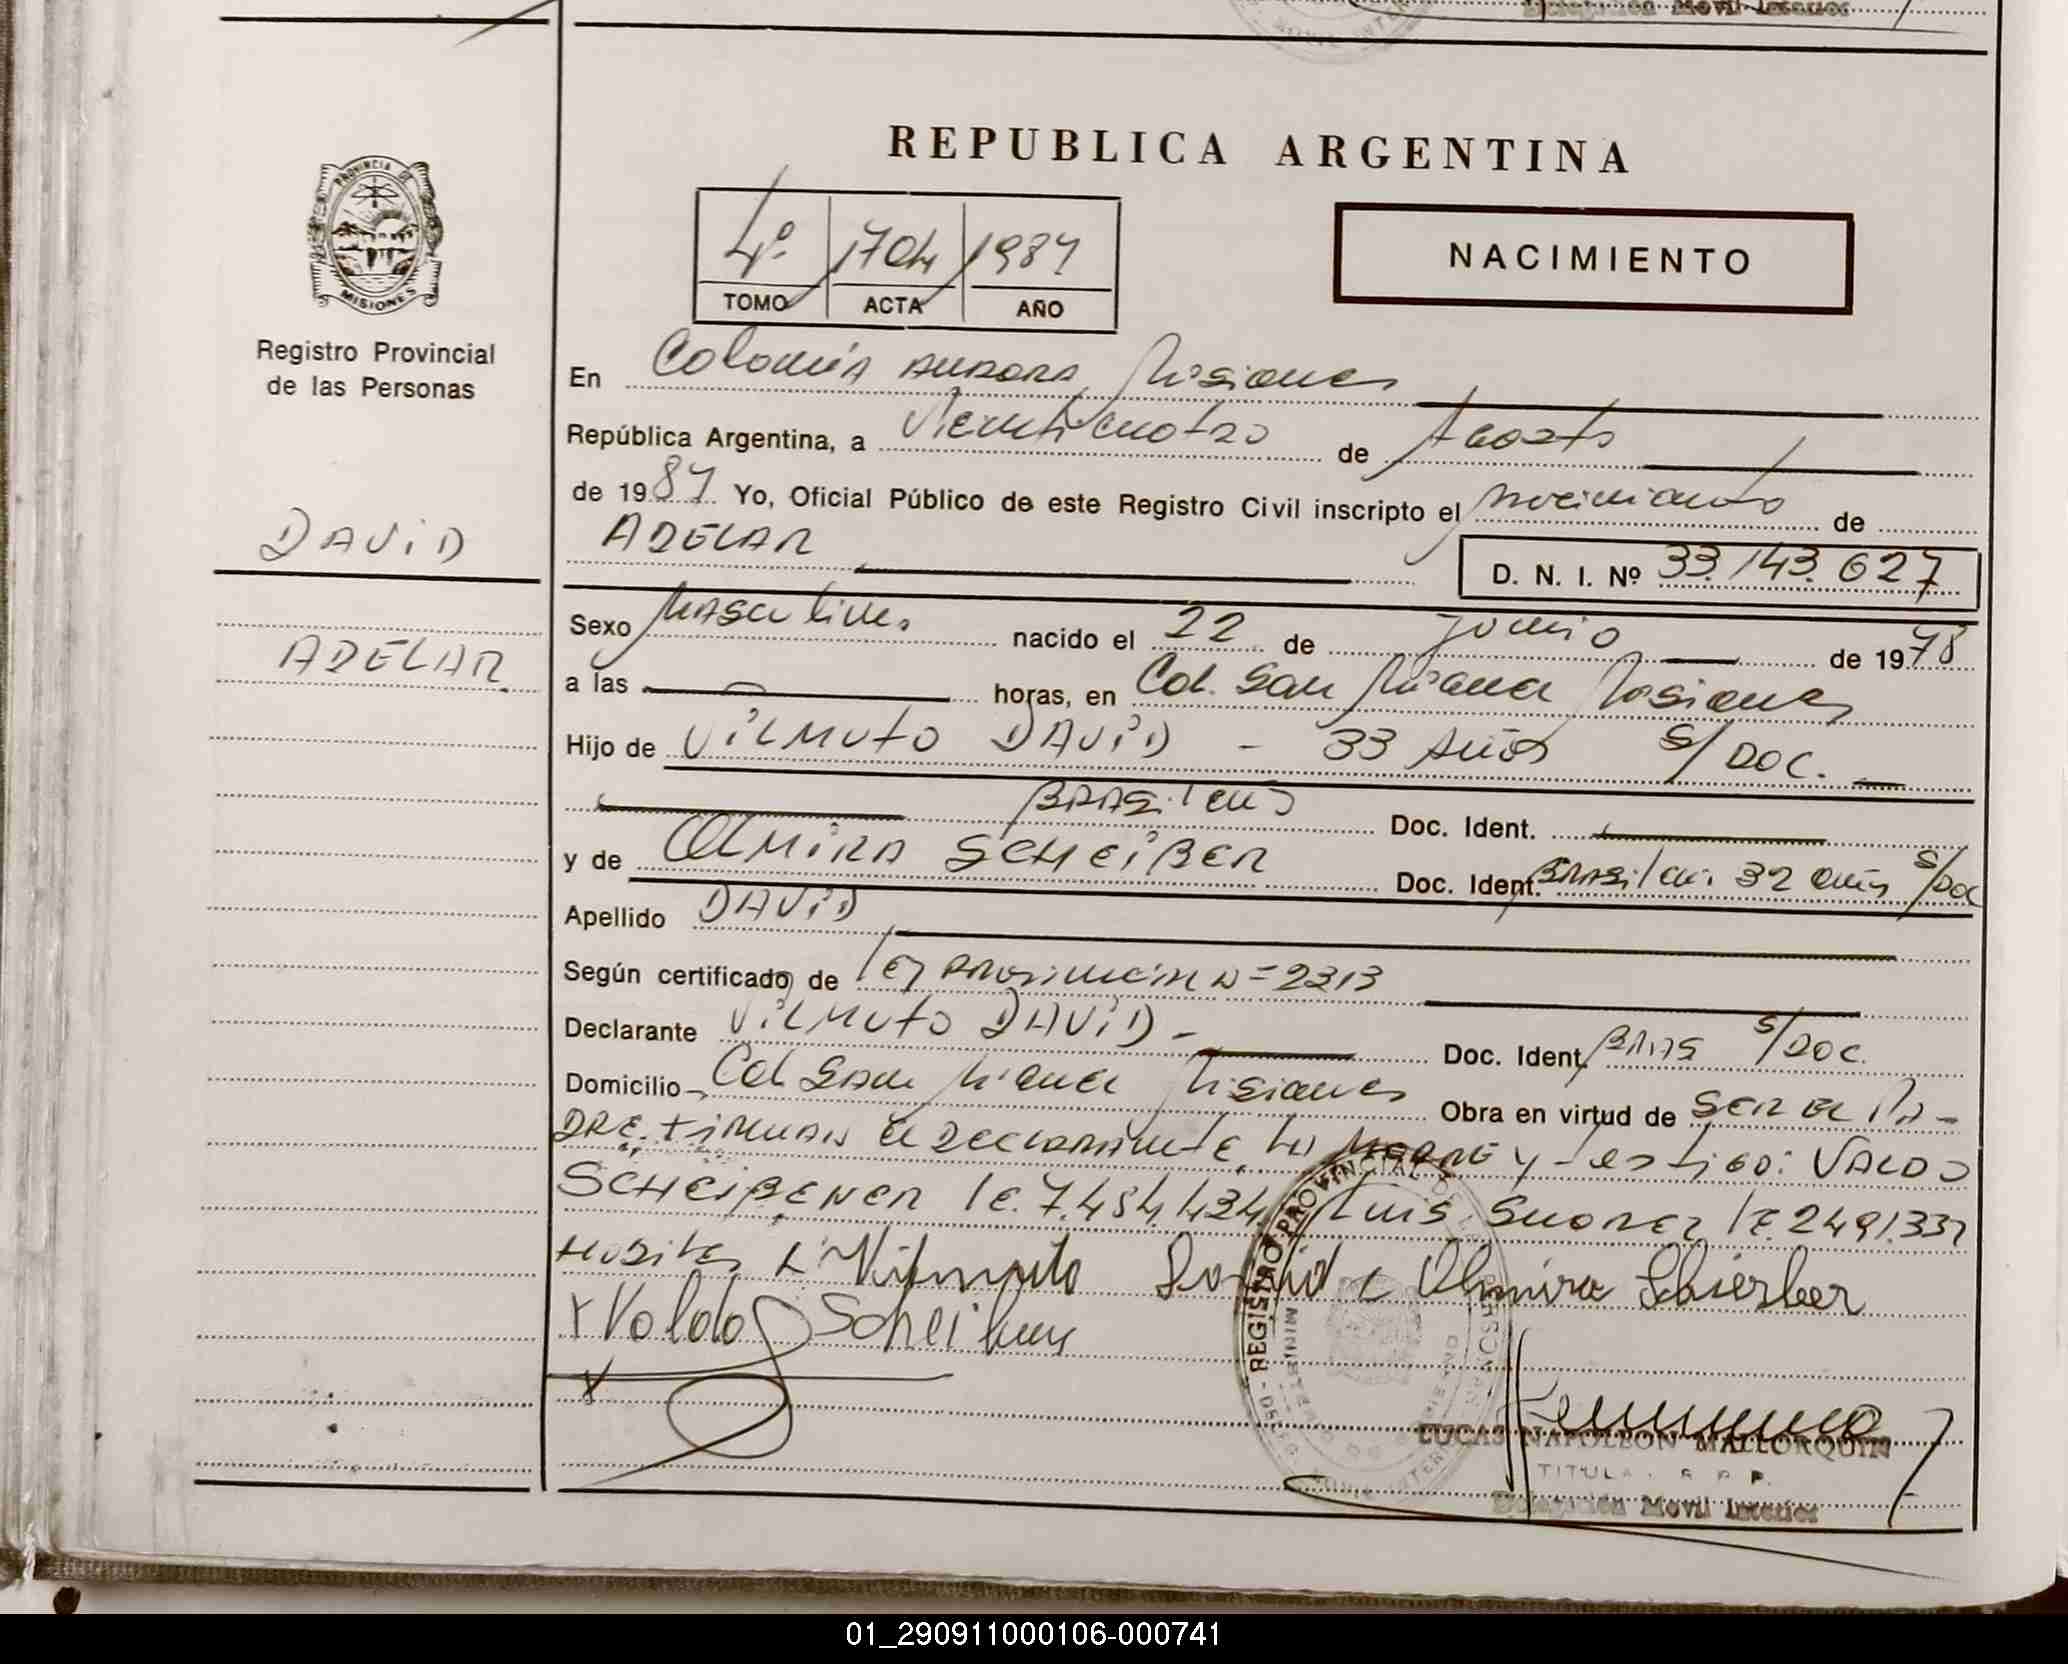 Delegación Movil Interior
REPUBLICA ARGENTINA
PROVINCIA DE
MISIONES
Registro Provincial
de las Personas
4º 1704 1987
TOMO ACTA AÑO
NACIMIENTO
En Colonia Aurora, Misiones
República Argentina, a Veinticuatro de Agosto
de 1987 Yo, Oficial Público de este Registro Civil inscripto el nacimiento de
DAVID
ADELAR
D. N. I. Nº 33.143.627
Sexo Masculino nacido el 22 de junio de 1978
ADELAR
a las horas, en Col. San Miguel Misiones
Hijo de VILMUTO DAVID - 33 Años S/DOC.
BRASILENO Doc. Ident.
y de OLMIRA SCHEIBER Doc. Ident. Brasilen. 32 años S/Doc
Apellido DAVID
Según certificado de Ley Provincial N= 2313
Declarante VILMUTO DAVID - Doc. Ident. BRAS S/DOC.
Domicilio Col San Miguel Misiones Obra en virtud de SER EL PA-
DRE. Firman el DECLARANTE, La MADRE y testigo: VALDO
SCHEIBENER LE. 7.454.434 Luis Suarez LE. 2491.337
Vilmuto David Olmira Schierber
x Valdo Scheibener
REGISTRO PROVINCIAL DE LAS PERSONAS
LUCAS NAPOLEON MALLORQUIN
TITULAR R. P. P.
Delegación Movil Interior
01_290911000106-000741